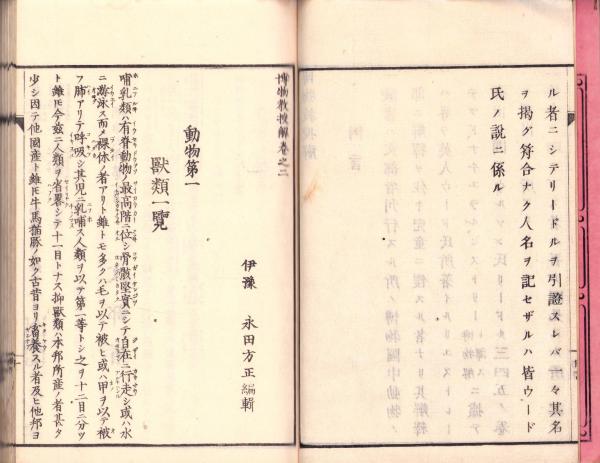 ル者ニシテリードルヲ引證スレバ一々其名
ヲ揚グ符合ナク人名ヲ記セザルハ皆ウード
氏ノ説ニ係ル
博物教授解巻之二
伊豫 永田方正編輯
動物第一
獸類一覽
哺乳類ハ有脊動物ノ最高階ニ位シ骨骸堅實ニシテ自在ニ行走シ或ハ水
ニ游泳ス而メ裸体ノ者アリト雖トモ多クハ毛ヲ以テ被ヒ或ハ甲ヲ以テ被
フ肺アリテ呼吸シ其児ニ乳哺ス人類ヲ以テ第一等トシ之ヲ十二目ニ分ツ
ト雖モ今茲ニ人類ヲ省畧シテ十一目トナス抑獸類ハ本邦所産ノ者甚タ
少シ因テ他國産ト雖モ牛馬猫豚ノ如ク古昔ヨリ畜養スル者及ヒ他邦ヨ